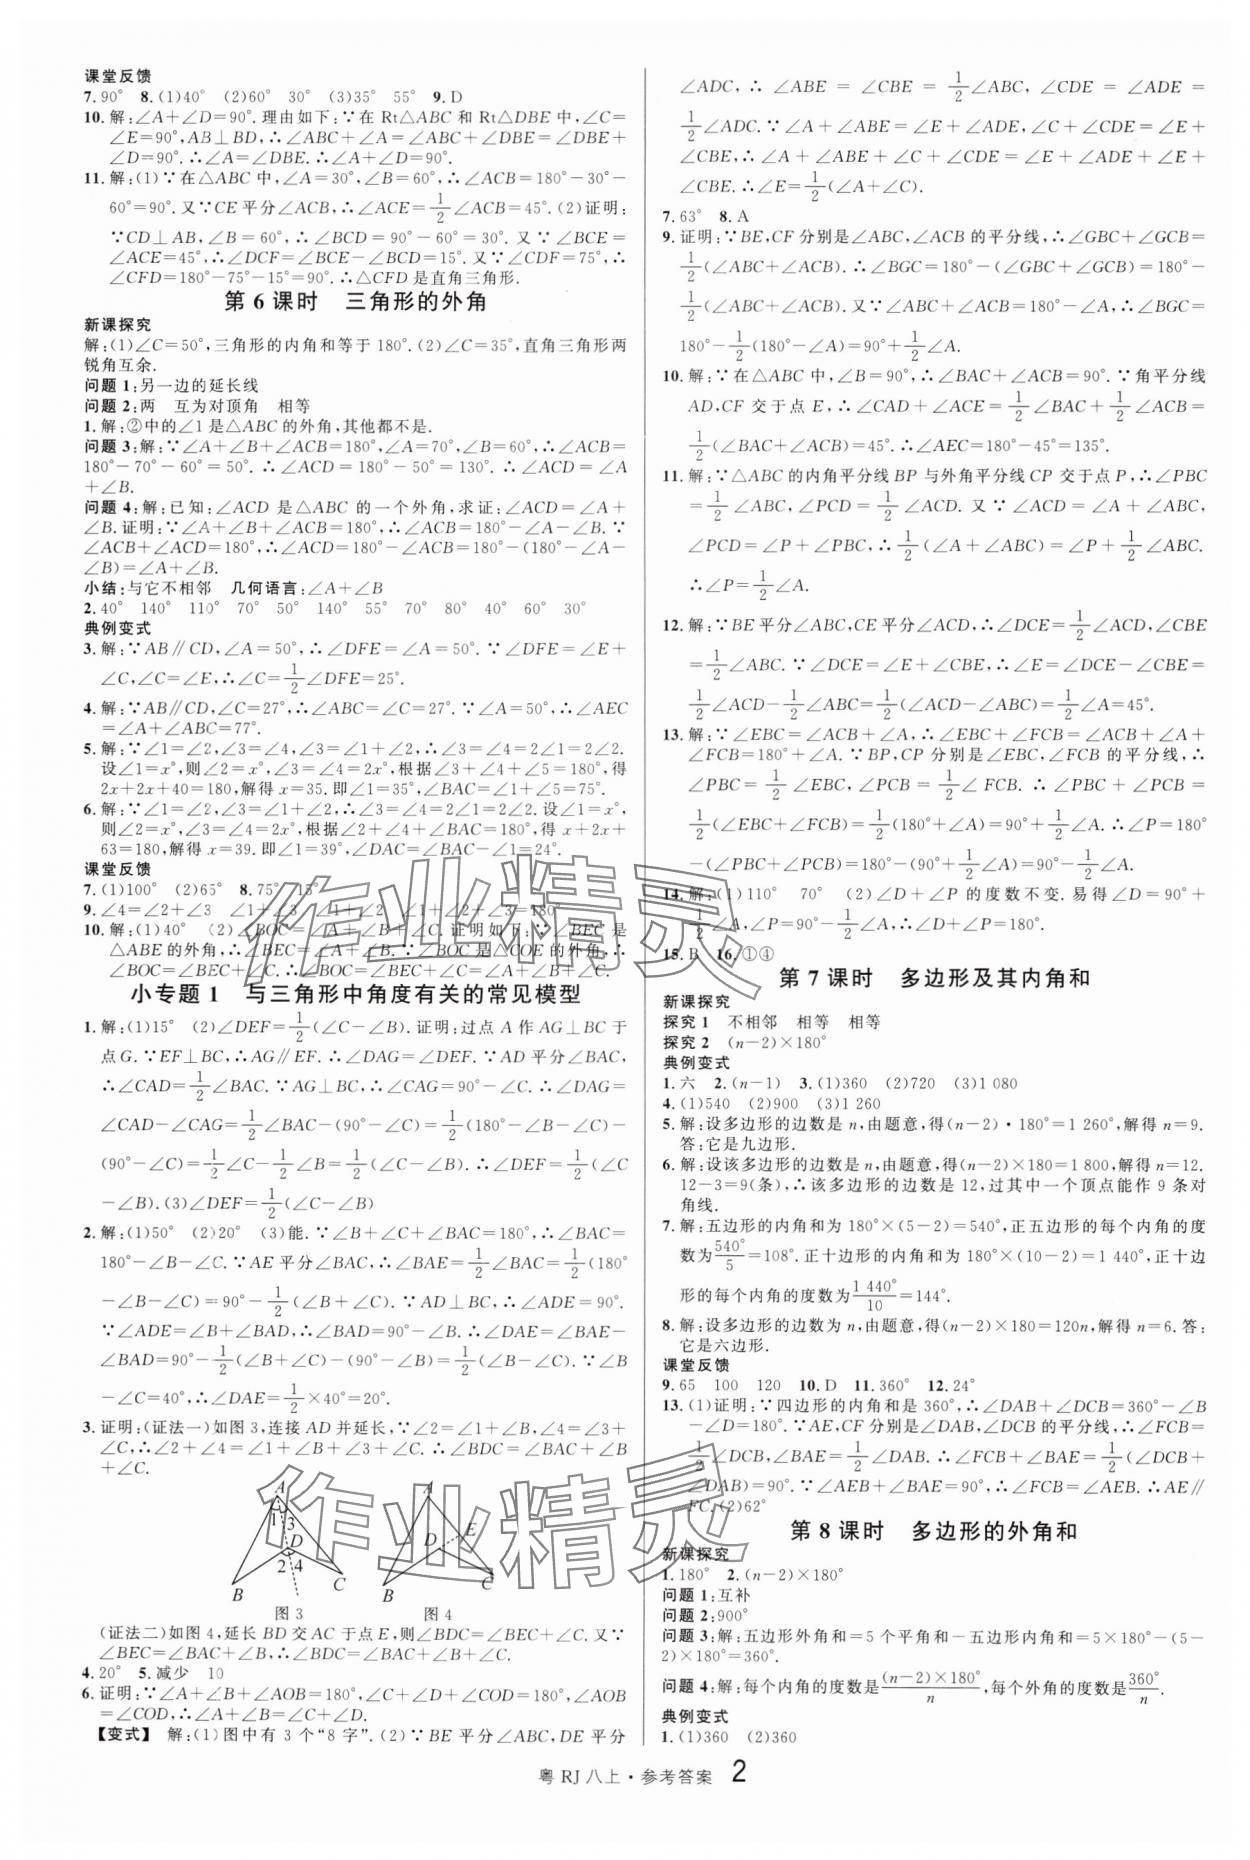 课堂反馈
7.90° 8.(1)40° (2)60° 30° (3)35° 55° 9.D
10.解:∠A+∠D=90°.理由如下:∵在Rt△ABC和Rt△DBE中,∠C=
∠E=90°,AB⊥BD,∴∠ABC+∠A=∠ABC+∠DBE=∠DBE+
∠D=90°.∴∠A=∠DBE.∴∠A+∠D=90°.
11.解:(1)∵在△ABC中,∠A=30°,∠B=60°,∴∠ACB=180°-30°-
60°=90°.又∵CE平分∠ACB,∴∠ACE=1/2∠ACB=45°.(2)证明:
∵CD⊥AB,∠B=60°,∴∠BCD=90°-60°=30°.又∵∠BCE=
∠ACE=45°,∴∠DCF=∠BCE-∠BCD=15°.又∵∠CDF=75°,∴
∠CFD=180°-75°-15°=90°.∴△CFD是直角三角形.
第6课时 三角形的外角
新课探究
解:(1)∠C=50°,三角形的内角和等于180°.(2)∠C=35°,直角三角形两
锐角互余.
问题1:另一边的延长线
问题2:两 互为对顶角 相等
1.解:②中的∠1是△ABC的外角,其他都不是.
问题3:解:∵∠A+∠B+∠ACB=180°,∠A=70°,∠B=60°,∴∠ACB=
180°-70°-60°=50°.∴∠ACD=180°-50°=130°.∴∠ACD=∠A
+∠B.
问题4:解:已知:∠ACD是△ABC的一个外角,求证:∠ACD=∠A+
∠B.证明:∵∠A+∠B+∠ACB=180°,∴∠ACB=180°-∠A-∠B.∵
∠ACB+∠ACD=180°,∴∠ACD=180°-∠ACB=180°-(180°-∠A-
∠B)=∠A+∠B.
小结:与它不相邻 几何语言:∠A+∠B
2.40° 140° 110° 70° 50° 140° 55° 70° 80° 40° 60° 30°
典例变式
3.解:∵AB∥CD,∠A=50°,∴∠DFE=∠A=50°.∵∠DFE=∠E+
∠C,∠C=∠E,∴∠C=1/2∠DFE=25°.
4.解:∵AB∥CD,∠C=27°,∴∠ABC=∠C=27°.∵∠A=50°,∴∠AEC
=∠A+∠ABC=77°.
5.解:∵∠1=∠2,∠3=∠4,∠3=∠1+∠2,∴∠3=∠4=2∠1=2∠2.
设∠1=x°,则∠2=x°,∠3=∠4=2x°,根据∠3+∠4+∠5=180°,得
2x+2x+40=180,解得x=35.即∠1=35°,∠BAC=∠1+∠5=75°.
6.解:∵∠1=∠2,∠3=∠1+∠2,∴∠3=∠4=2∠1=2∠2.设∠1=x°,
则∠2=x°,∠3=∠4=2x°,根据∠2+∠4+∠BAC=180°,得x+2x+
63=180,解得x=39.即∠1=39°,∠DAC=∠BAC-∠1=24°.
课堂反馈
7.(1)100° (2)65° 8.75° 15°
9.∠4=∠2+∠3 ∠1+∠3 ∠1+∠2 ∠1+∠2+∠3=180°
10.解:(1)40° (2)∠BOC=∠A+∠B+∠C.证明如下:∵∠BEC是
△ABE的外角,∴∠BEC=∠A+∠B.∵∠BOC是△COE的外角,∴
∠BOC=∠BEC+∠C.∴∠BOC=∠A+∠B+∠C.
小专题1 与三角形中角度有关的常见模型
1.解:(1)15° (2)∠DEF=1/2(∠C-∠B).证明:过点A作AG⊥BC于
点G.∵EF⊥BC,∴AG∥EF.∴∠DAG=∠DEF.∵AD平分∠BAC,
∴∠CAD=1/2∠BAC.∵AG⊥BC,∴∠CAG=90°-∠C.∴∠DAG=
∠CAD-∠CAG=1/2∠BAC-(90°-∠C)=1/2(180°-∠B-∠C)-
(90°-∠C)=1/2∠C-1/2∠B=1/2(∠C-∠B).∴∠DEF=1/2(∠C
-∠B).(3)∠DEF=1/2(∠C-∠B)
2.解:(1)50° (2)20° (3)能.∵∠B+∠C+∠BAC=180°,∴∠BAC=
180°-∠B-∠C.∵AE平分∠BAC,∴∠BAE=1/2∠BAC=1/2(180°
-∠B-∠C)=90°-1/2(∠B+∠C).∵AD⊥BC,∴∠ADE=90°.
∵∠ADE=∠B+∠BAD,∴∠BAD=90°-∠B.∴∠DAE=∠BAE-
∠BAD=90°-1/2(∠B+∠C)-(90°-∠B)=1/2(∠B-∠C).∵∠B
-∠C=40°,∴∠DAE=1/2×40°=20°.
3.证明:(证法一)如图3,连接AD并延长,∵∠2=∠1+∠B,∠4=∠3+
∠C,∴∠2+∠4=∠1+∠B+∠3+∠C.∴∠BDC=∠BAC+∠B
+∠C.
A
1 3
D
2 4
B C
图3
A
D E
B C
图4
(证法二)如图4,延长BD交AC于点E,则∠BDC=∠BEC+∠C.又∵
∠BEC=∠BAC+∠B,∴∠BDC=∠BAC+∠B+∠C.
4.20° 5.减少 10
6.证明:∵∠A+∠B+∠AOB=180°,∠C+∠D+∠COD=180°,∠AOB
=∠COD,∴∠A+∠B=∠C+∠D.
【变式】 解:(1)图中有3个“8字”.(2)∵BE平分∠ABC,DE平分
∠ADC,∴∠ABE=∠CBE=1/2∠ABC,∠CDE=∠ADE=
1/2∠ADC.∵∠A+∠ABE=∠E+∠ADE,∠C+∠CDE=∠E+
∠CBE,∴∠A+∠ABE+∠C+∠CDE=∠E+∠ADE+∠E+
∠CBE.∴∠E=1/2(∠A+∠C).
7.63° 8.A
9.证明:∵BE,CF分别是∠ABC,∠ACB的平分线,∴∠GBC+∠GCB=
1/2(∠ABC+∠ACB).∴∠BGC=180°-(∠GBC+∠GCB)=180°-
1/2(∠ABC+∠ACB).又∵∠ABC+∠ACB=180°-∠A,∴∠BGC=
180°-1/2(180°-∠A)=90°+1/2∠A.
10.解:∵在△ABC中,∠B=90°,∴∠BAC+∠ACB=90°.∵角平分线
AD,CF交于点E,∴∠CAD+∠ACE=1/2∠BAC+1/2∠ACB=1/2
(∠BAC+∠ACB)=45°.∴∠AEC=180°-45°=135°.
11.解:∵△ABC的内角平分线BP与外角平分线CP交于点P,∴∠PBC
=1/2∠ABC,∠PCD=1/2∠ACD.又∵∠ACD=∠A+∠ABC,
∠PCD=∠P+∠PBC,∴1/2(∠A+∠ABC)=∠P+1/2∠ABC.
∴∠P=1/2∠A.
12.解:∵BE平分∠ABC,CE平分∠ACD,∴∠DCE=1/2∠ACD,∠CBE
=1/2∠ABC.∵∠DCE=∠E+∠CBE,∴∠E=∠DCE-∠CBE=
1/2∠ACD-1/2∠ABC=1/2(∠ACD-∠ABC)=1/2∠A=45°.
13.解:∵∠EBC=∠ACB+∠A,∴∠EBC+∠FCB=∠ACB+∠A+
∠FCB=180°+∠A.∵BP,CP分别是∠EBC,∠FCB的平分线,∴
∠PBC=1/2∠EBC,∠PCB=1/2∠FCB.∴∠PBC+∠PCB=
1/2(∠EBC+∠FCB)=1/2(180°+∠A)=90°+1/2∠A.∴∠P=180°
-(∠PBC+∠PCB)=180°-(90°+1/2∠A)=90°-1/2∠A.
14.解:(1)110° 70° (2)∠D+∠P的度数不变.易得∠D=90°+
1/2∠A,∠P=90°-1/2∠A,∴∠D+∠P=180°.
15.B 16.①④
第7课时 多边形及其内角和
新课探究
探究1 不相邻 相等 相等
探究2 (n-2)×180°
典例变式
1.六 2.(n-1) 3.(1)360 (2)720 (3)1 080
4.(1)540 (2)900 (3)1 260
5.解:设多边形的边数是n,由题意,得(n-2)·180°=1 260°,解得n=9.
答:它是九边形.
6.解:设该多边形的边数是n,由题意,得(n-2)×180=1 800,解得n=12.
12-3=9(条),∴该多边形的边数是12,过其中一个顶点能作9条对
角线.
7.解:五边形的内角和为180°×(5-2)=540°,正五边形的每个内角的度
数为540°/5=108°.正十边形的内角和为180°×(10-2)=1 440°,正十边
形的每个内角的度数为1 440°/10=144°.
8.解:设多边形的边数为n,由题意,得(n-2)×180=120n,解得n=6.答:
它是六边形.
课堂反馈
9.65 100 120 10.D 11.360° 12.24°
13.(1)证明:∵四边形的内角和是360°,∴∠DAB+∠DCB=360°-∠B
-∠D=180°.∵AE,CF分别是∠DAB,∠DCB的平分线,∴∠FCB=
1/2∠DCB,∠BAE=1/2∠DAB.∴∠FCB+∠BAE=1/2(∠DCB+
∠DAB)=90°.∵∠AEB+∠BAE=90°,∴∠FCB=∠AEB.∴AE∥
FC.(2)62°
第8课时 多边形的外角和
新课探究
1.180° 2.(n-2)×180°
问题1:互补
问题2:900°
问题3:解:五边形外角和=5个平角和-五边形内角和=5×180°-(5-
2)×180°=360°.
问题4:解:每个内角的度数是(n-2)×180°/n,每个外角的度数是360°/n.
典例变式
1.(1)360 (2)360
作业精灵
作业精灵
粤RJ八上·参考答案 2